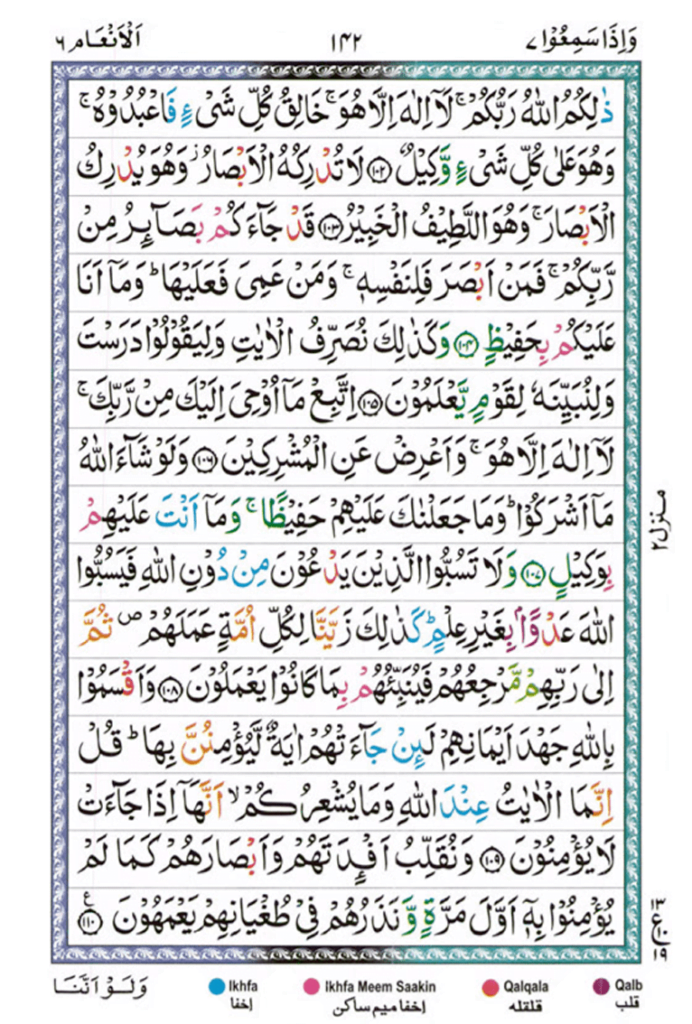 وَاِذَا سَمِعُوْا ٧ ١٤٢ اَلْاَنْعَام ٦
ذٰلِكُمُ اللّٰهُ رَبُّكُمْ ۚ لَاۤ اِلٰهَ اِلَّا هُوَ ۚ خَالِقُ كُلِّ شَیْءٍ فَاعْبُدُوْهُ ۚ
وَهُوَ عَلٰى كُلِّ شَیْءٍ وَّكِیْلٌ ۝١٠٢ لَا تُدْرِكُهُ الْاَبْصَارُ ؗ وَهُوَ یُدْرِكُ
الْاَبْصَارَ ۚ وَهُوَ اللَّطِیْفُ الْخَبِیْرُ ۝١٠٣ قَدْ جَآءَكُمْ بَصَآىِٕرُ مِنْ
رَّبِّكُمْ ۚ فَمَنْ اَبْصَرَ فَلِنَفْسِهٖ ۚ وَمَنْ عَمِیَ فَعَلَیْهَا ؕ وَمَاۤ اَنَا
عَلَیْكُمْ بِحَفِیْظٍ ۝١٠٤ وَكَذٰلِكَ نُصَرِّفُ الْاٰیٰتِ وَلِیَقُوْلُوْا دَرَسْتَ
وَلِنُبَیِّنَهٗ لِقَوْمٍ یَّعْلَمُوْنَ ۝١٠٥ اِتَّبِعْ مَاۤ اُوْحِیَ اِلَیْكَ مِنْ رَّبِّكَ ۚ
لَاۤ اِلٰهَ اِلَّا هُوَ ۚ وَاَعْرِضْ عَنِ الْمُشْرِكِیْنَ ۝١٠٦ وَلَوْ شَآءَ اللّٰهُ
مَاۤ اَشْرَكُوْا ؕ وَمَا جَعَلْنٰكَ عَلَیْهِمْ حَفِیْظًا ۚ وَمَاۤ اَنْتَ عَلَیْهِمْ
بِوَكِیْلٍ ۝١٠٧ وَلَا تَسُبُّوا الَّذِیْنَ یَدْعُوْنَ مِنْ دُوْنِ اللّٰهِ فَیَسُبُّوا
اللّٰهَ عَدْوًۢا بِغَیْرِ عِلْمٍ ؕ كَذٰلِكَ زَیَّنَّا لِكُلِّ اُمَّةٍ عَمَلَهُمْ ۪ ثُمَّ
اِلٰى رَبِّهِمْ مَّرْجِعُهُمْ فَیُنَبِّئُهُمْ بِمَا كَانُوْا یَعْمَلُوْنَ ۝١٠٨ وَاَقْسَمُوْا
بِاللّٰهِ جَهْدَ اَیْمَانِهِمْ لَىِٕنْ جَآءَتْهُمْ اٰیَةٌ لَّیُؤْمِنُنَّ بِهَا ؕ قُلْ
اِنَّمَا الْاٰیٰتُ عِنْدَ اللّٰهِ وَمَا یُشْعِرُكُمْ ۙ اَنَّهَاۤ اِذَا جَآءَتْ
لَا یُؤْمِنُوْنَ ۝١٠٩ وَنُقَلِّبُ اَفْـِٕدَتَهُمْ وَاَبْصَارَهُمْ كَمَا لَمْ
یُؤْمِنُوْا بِهٖۤ اَوَّلَ مَرَّةٍ وَّنَذَرُهُمْ فِیْ طُغْیَانِهِمْ یَعْمَهُوْنَ ۝١١٠ ع
منزل ٢
١٣
ع
١٩
Ikhfa Ikhfa Meem Saakin Qalqala Qalb
اخفا اخفا میم ساکن قلقله قلب
وَلَوْ اَنَّنَا